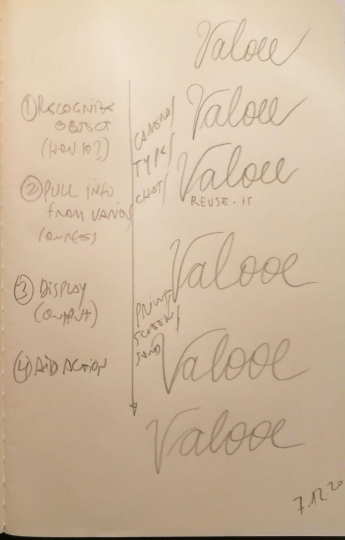 ① RECOGNIZE
OBJECT
(HOW TO?)
② PULL INFO
from VARIOUS
③ DISPLAY
(OUTPUT)
④ ADD ACTION
CAMERA/
TYPE/
CHAT/
PRINT
SCREEN/
Valoee
Valoee
Valoee
REUSE-IT
Valooe
Valooe
Valooe
7.12.20